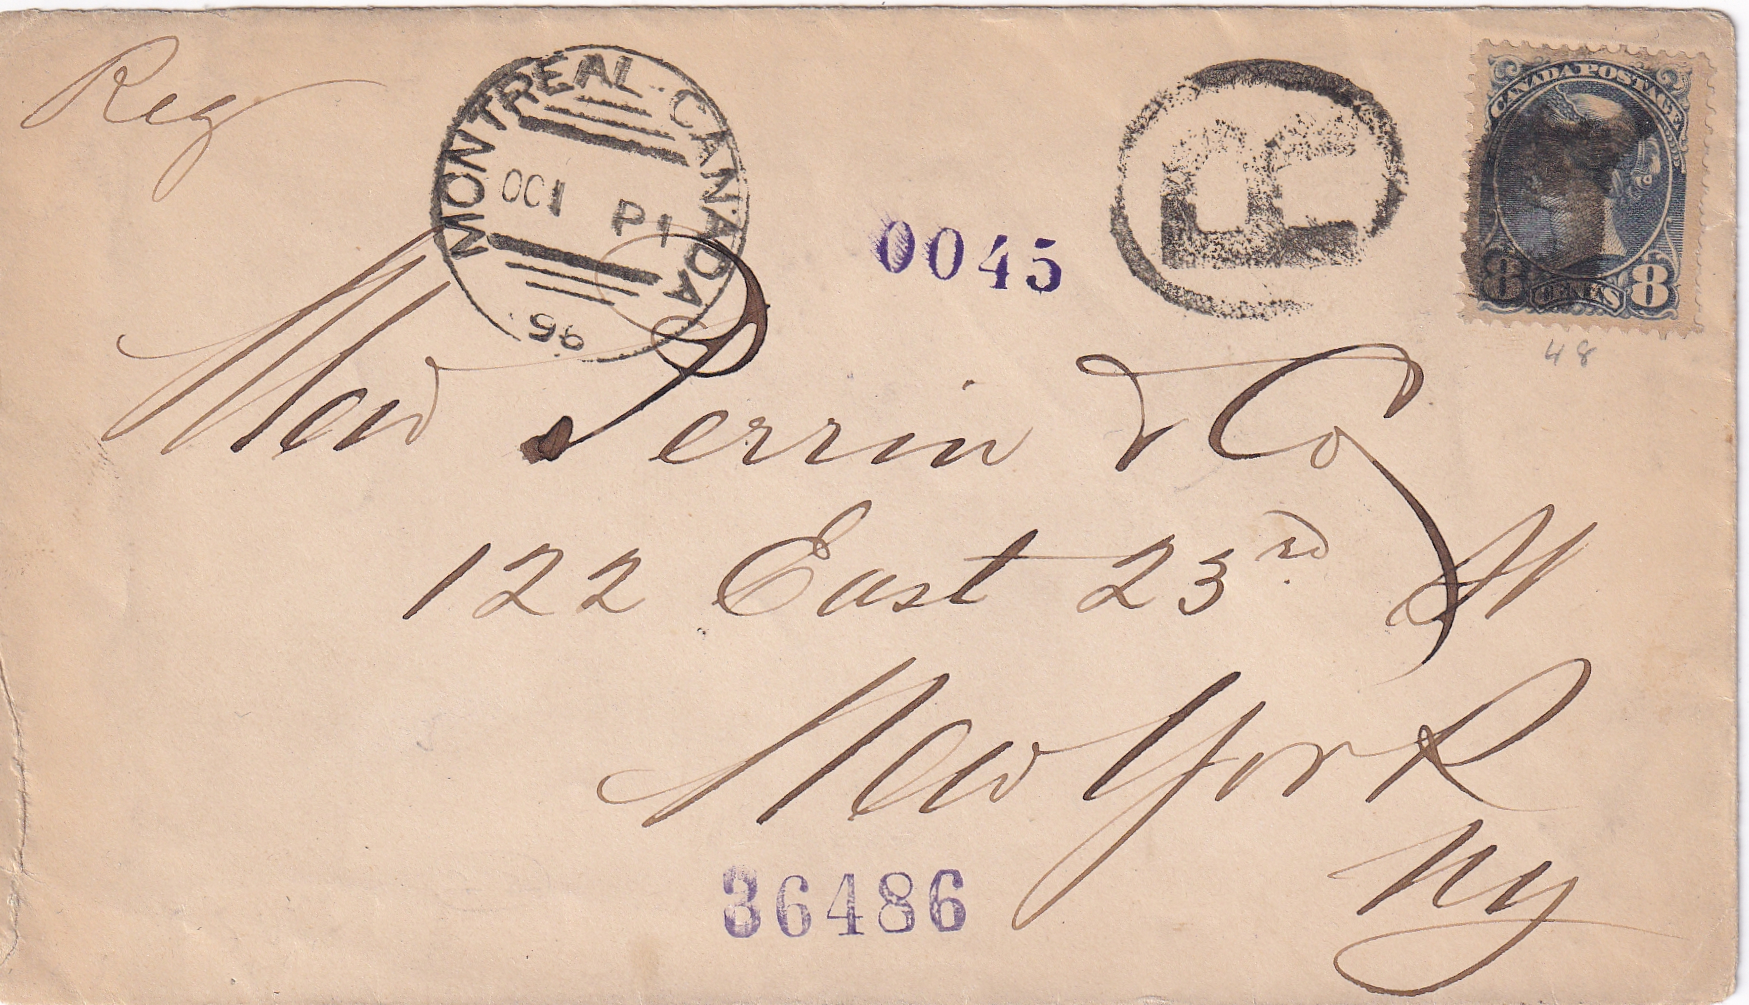 Reg
MONTREAL·CANADA
OC 1 P 1
96
0045
R
CANADA POSTAGE
8 CENTS 8
48
Mead Perrin & Co
122 East 23rd St
New York
NY
36486